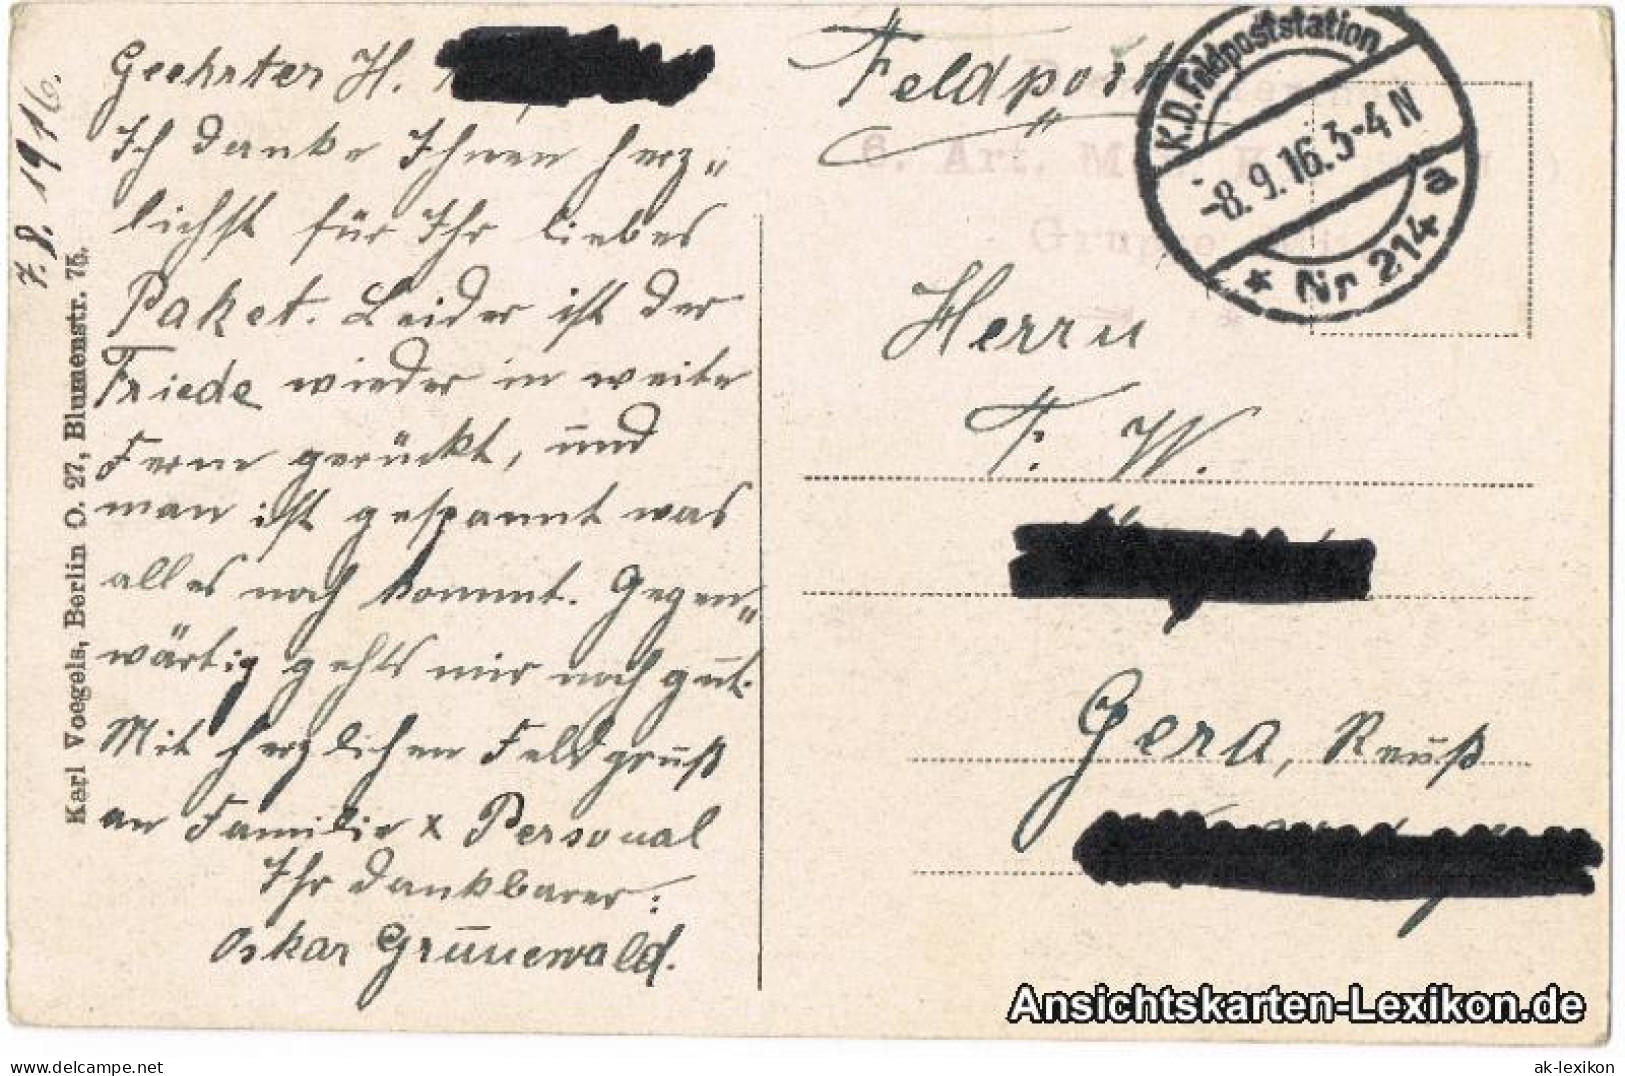 7.8.1916.
Geehrter H.
Ich danke Ihnen herz„
lichst für Ihr liebes
Paket. Leider ist der
Friede wieder in weite
Ferne gerückt, und
man ist gespannt was
alles noch kommt. Gegen„
wärtig gehts mir noch gut.
Mit herzlichen Feldgruß
an Familie x Personal
Ihr dankbarer:
Oskar Grünewald.
Karl Voegels, Berlin O. 27, Blumenstr. 75.
Feldpost
K.D. Feldpoststation
-8.9.16.3-4N
a
* Nr 214
6. Art.
Gruppe
Herrn
F. W.
Gera, Reuß
Ansichtskarten-Lexikon.de
the best of collecting - Delcampe.net
ak-lexikon